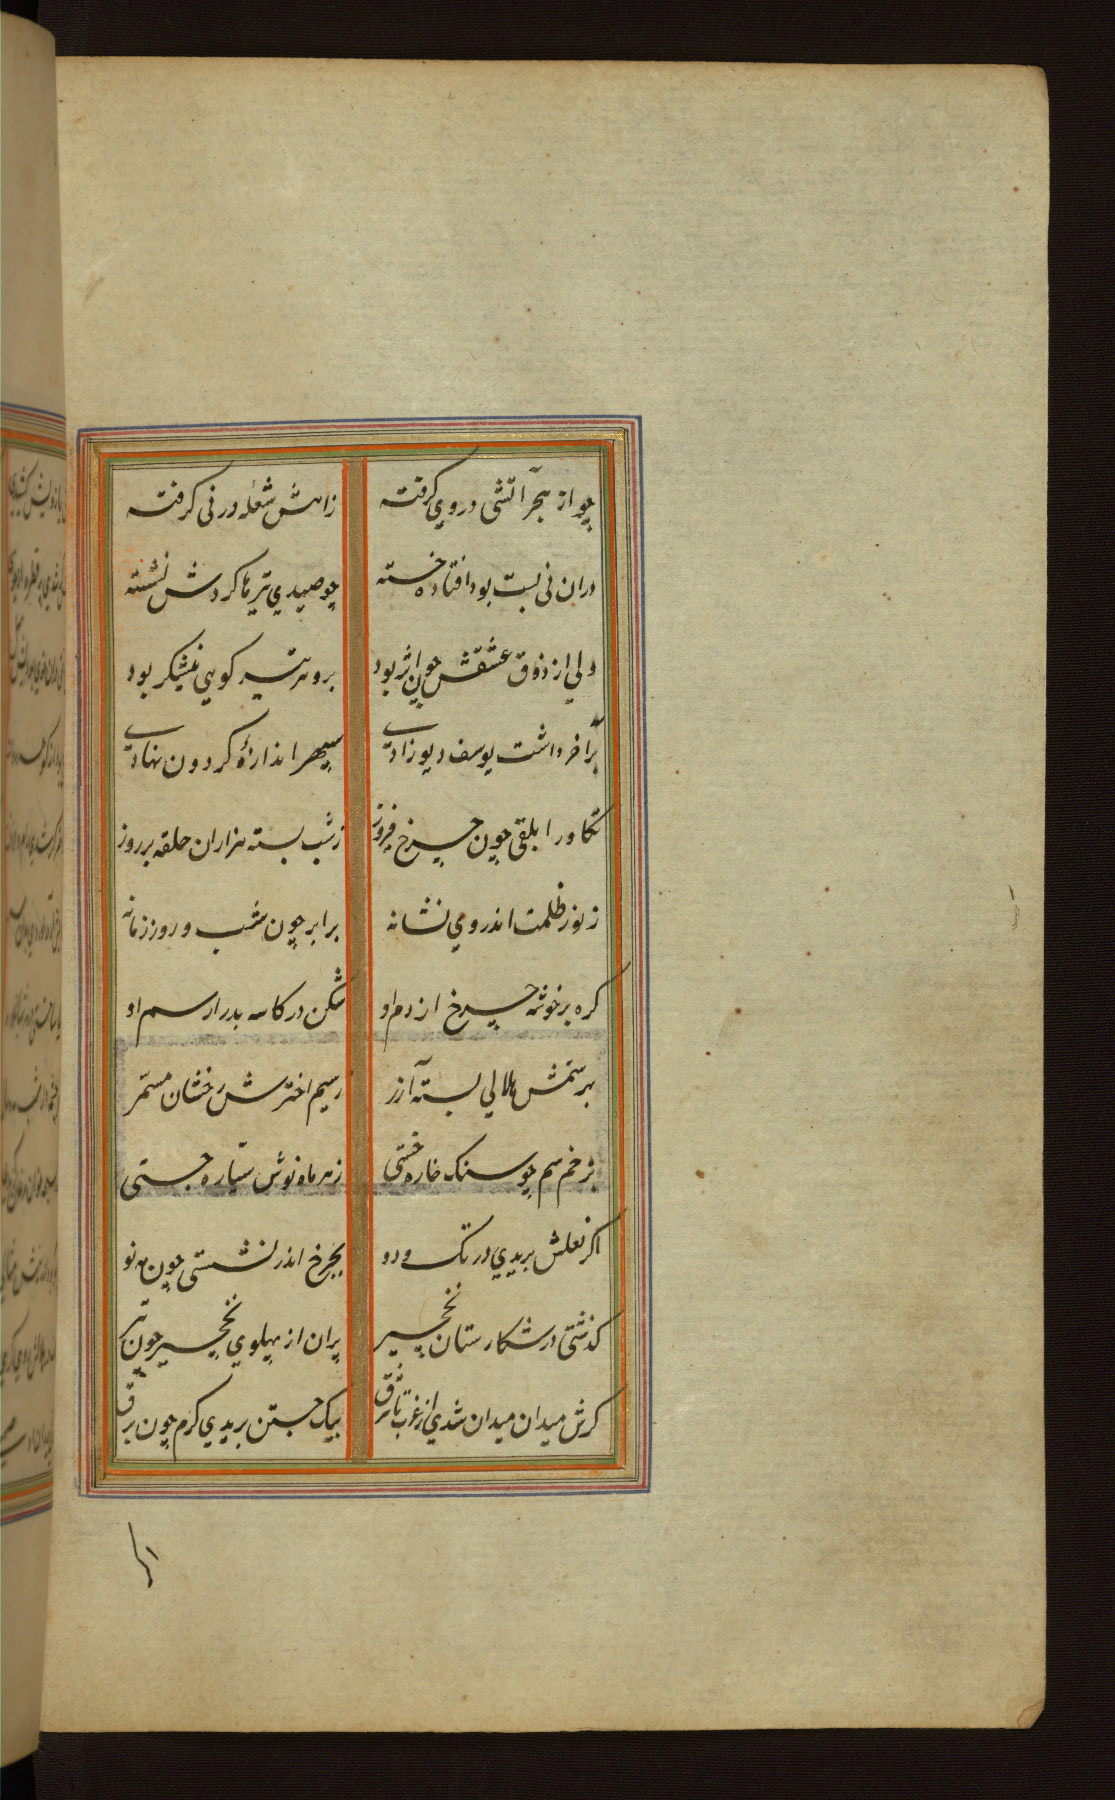 چو از هجر آتشی در وی کرفته ز آهش شعله در نی کرفته
در ان نی بست بود افتاده خسته چو صیدی تیرها کردش نشسته
ولی از ذوق عشقش چون اثر بود برو هر تیر کویی نیشکر بود
بر آخر داشت یوسف دیوزادی سپهر اندازهٔ کردون نهادی
تکاور ابلقی چون چرخ فیروز ز شب بسته هزاران حلقه بر روز
ز نور ظلمت اندر وی نشانه برابر چون شب و روز زمانه
کره بر خوشه چرخ از دم او شکن در کاسه بدر از سم او
بهر سمش هلالی بسته از زر رسیم اخترش رخشان مسمر
بزخم سم چو سنک خاره خستی ز هر ماه نوش سیاره جستی
اکر نعلش بریدی در تک و دو بچرخ اندر نشستی چون مه نو
کذشتی در شکارستان نخچیر پران از پهلوی نخچیر چون تیر
کرش میدان میدان شدی از غرب تا شرق بیک جستن بریدی کرم چون برق
اکر